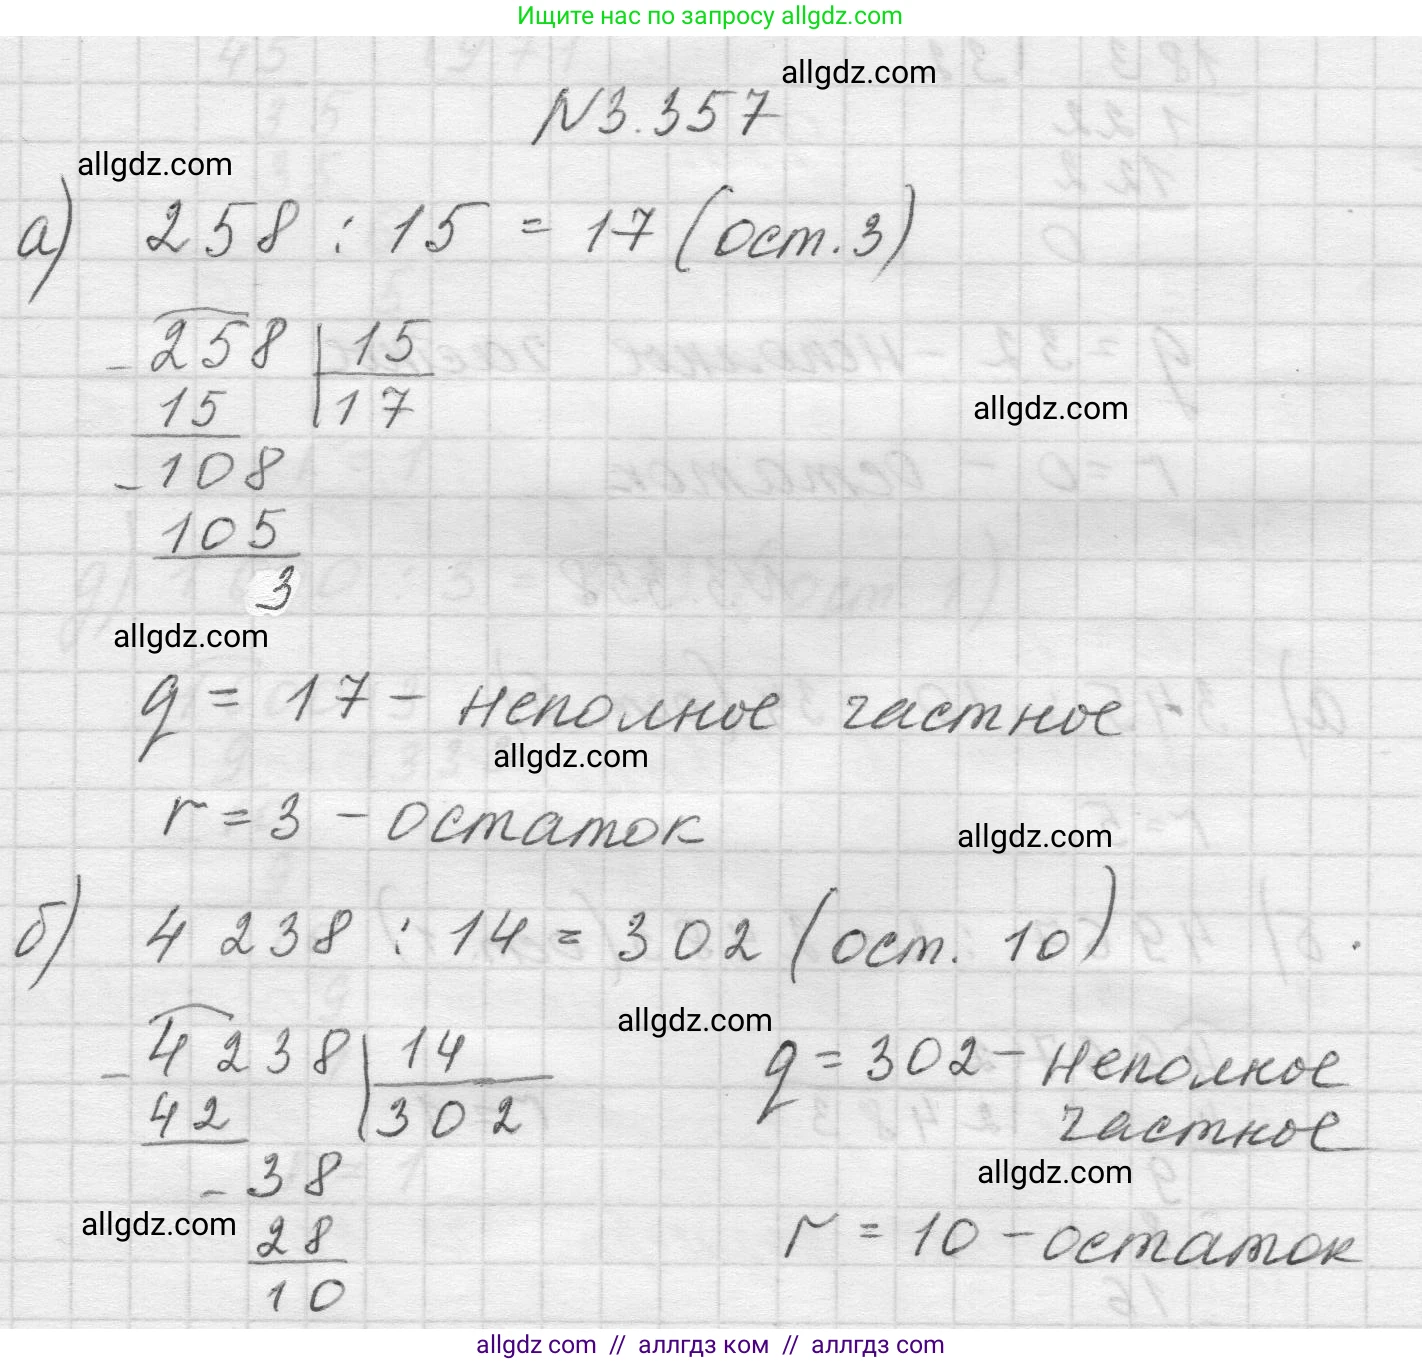 Ищите нас по запросу allgdz.com
allgdz.com
N3.357
allgdz.com
а) 258 : 15 = 17 (ост. 3)
- 258 | 15
15 | 17
allgdz.com
- 108
105
3
allgdz.com
q = 17 - неполное частное
allgdz.com
r = 3 - остаток
allgdz.com
б) 4 238 : 14 = 302 (ост. 10)
allgdz.com
- 4238 | 14
42 | 302
q = 302 - неполное
частное
- 38
allgdz.com
allgdz.com
28
r = 10 - остаток
10
allgdz com // аллгдз ком // аллгдз com